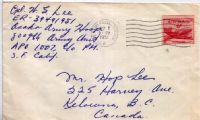 Cpl. W. S. Lee
ER-39441951
Osaka Army Hosp
8007th Army Unit
APO 1007, c/o P.M.
S.F. Calif.
Mr. Hop Lee
325 Harvey Ave.
Kelowna, B.C.
Canada